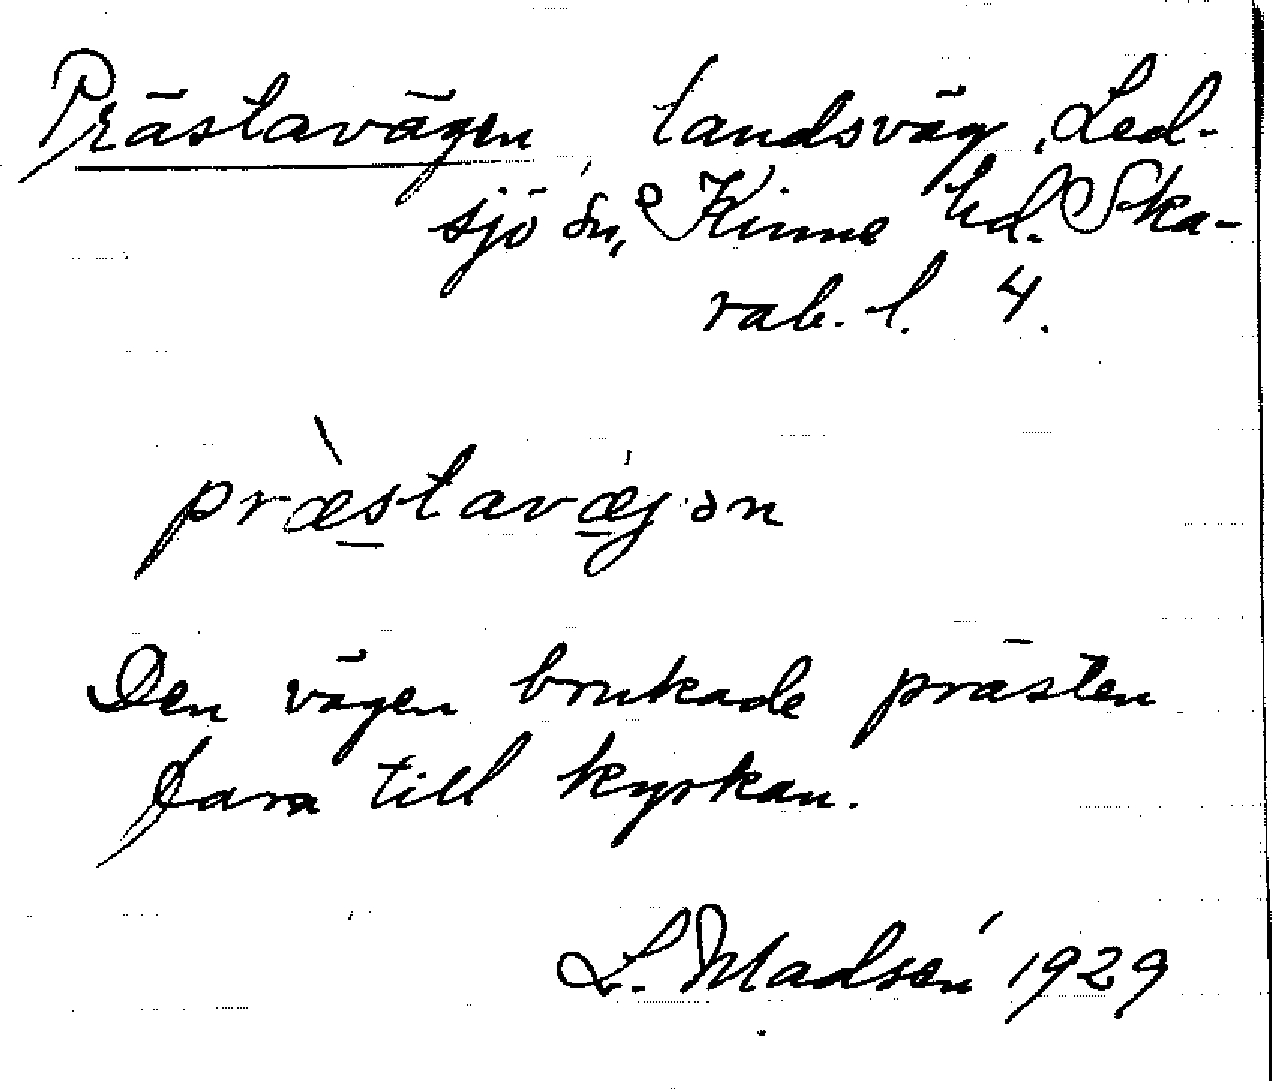 Prästavägen, landsväg, Led-
sjö sn, Kinne hd. Ska-
rab. l. 4.
præ̀stavæ̀jən
Den vägen brukade prästen
fara till kyrkan.
L. Madsén 1929